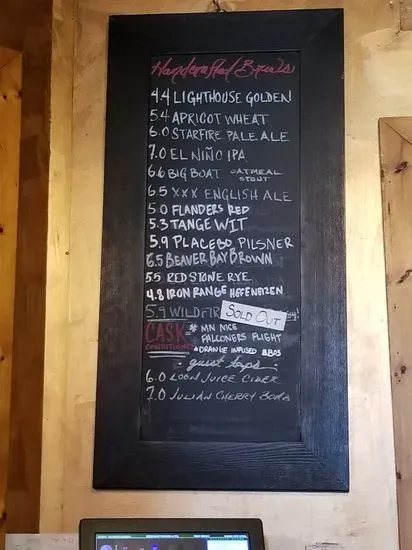 Handcrafted Brews
4.4 LIGHTHOUSE GOLDEN
5.4 APRICOT WHEAT
6.0 STARFIRE PALE ALE
7.0 EL NIÑO IPA
6.6 BIG BOAT OATMEAL STOUT
6.5 XXX ENGLISH ALE
5.0 FLANDERS RED
5.3 TANGE WIT
5.9 PLACEBO PILSNER
6.5 BEAVER BAY BROWN
5.5 RED STONE RYE
4.8 IRON RANGE HEFEWEIZEN
5.9 WILDFIR SOLD OUT
CASK CONDITIONED
* MN NICE
FALCONERS FLIGHT
* ORANGE INFUSED BBOS
guest taps
6.0 LOON JUICE CIDER
7.0 JULIAN CHERRY BOMB